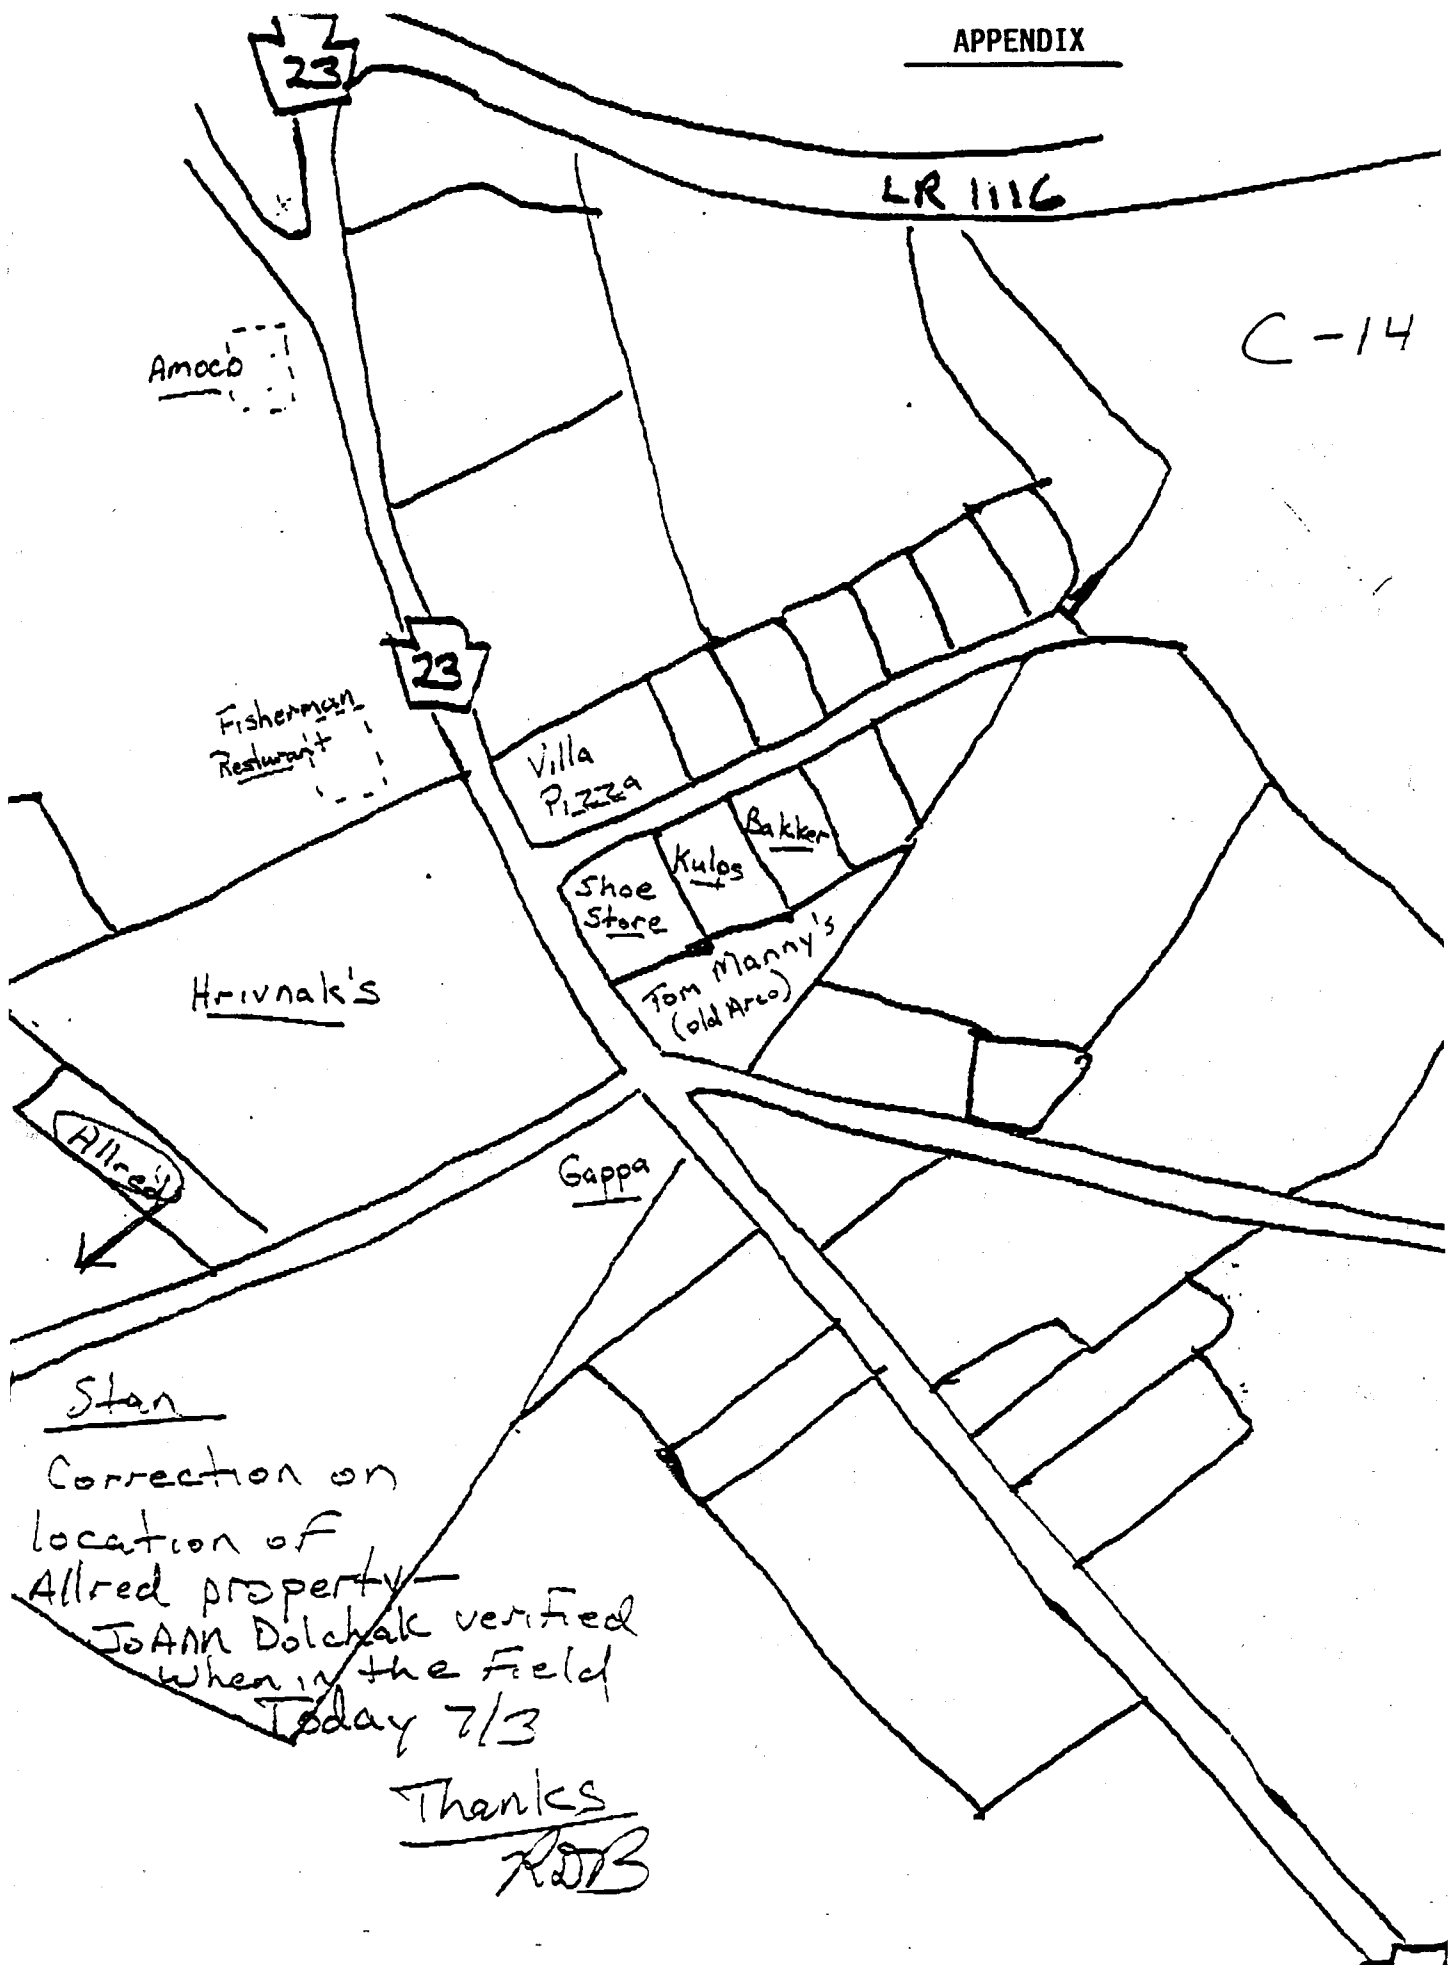 APPENDIX
23
LR 1116
C-14
Amoco
23
Fisherman
Resturant
Villa
Pizza
Bakker
Kulos
Shoe
Store
Tom Manny's
(old Arco)
Hrivnak's
Allred
Gappa
Stan
Correction on
location of
Allred property—
JoAnn Dolchak verified
when in the Field
Today 7/3
Thanks
RDB